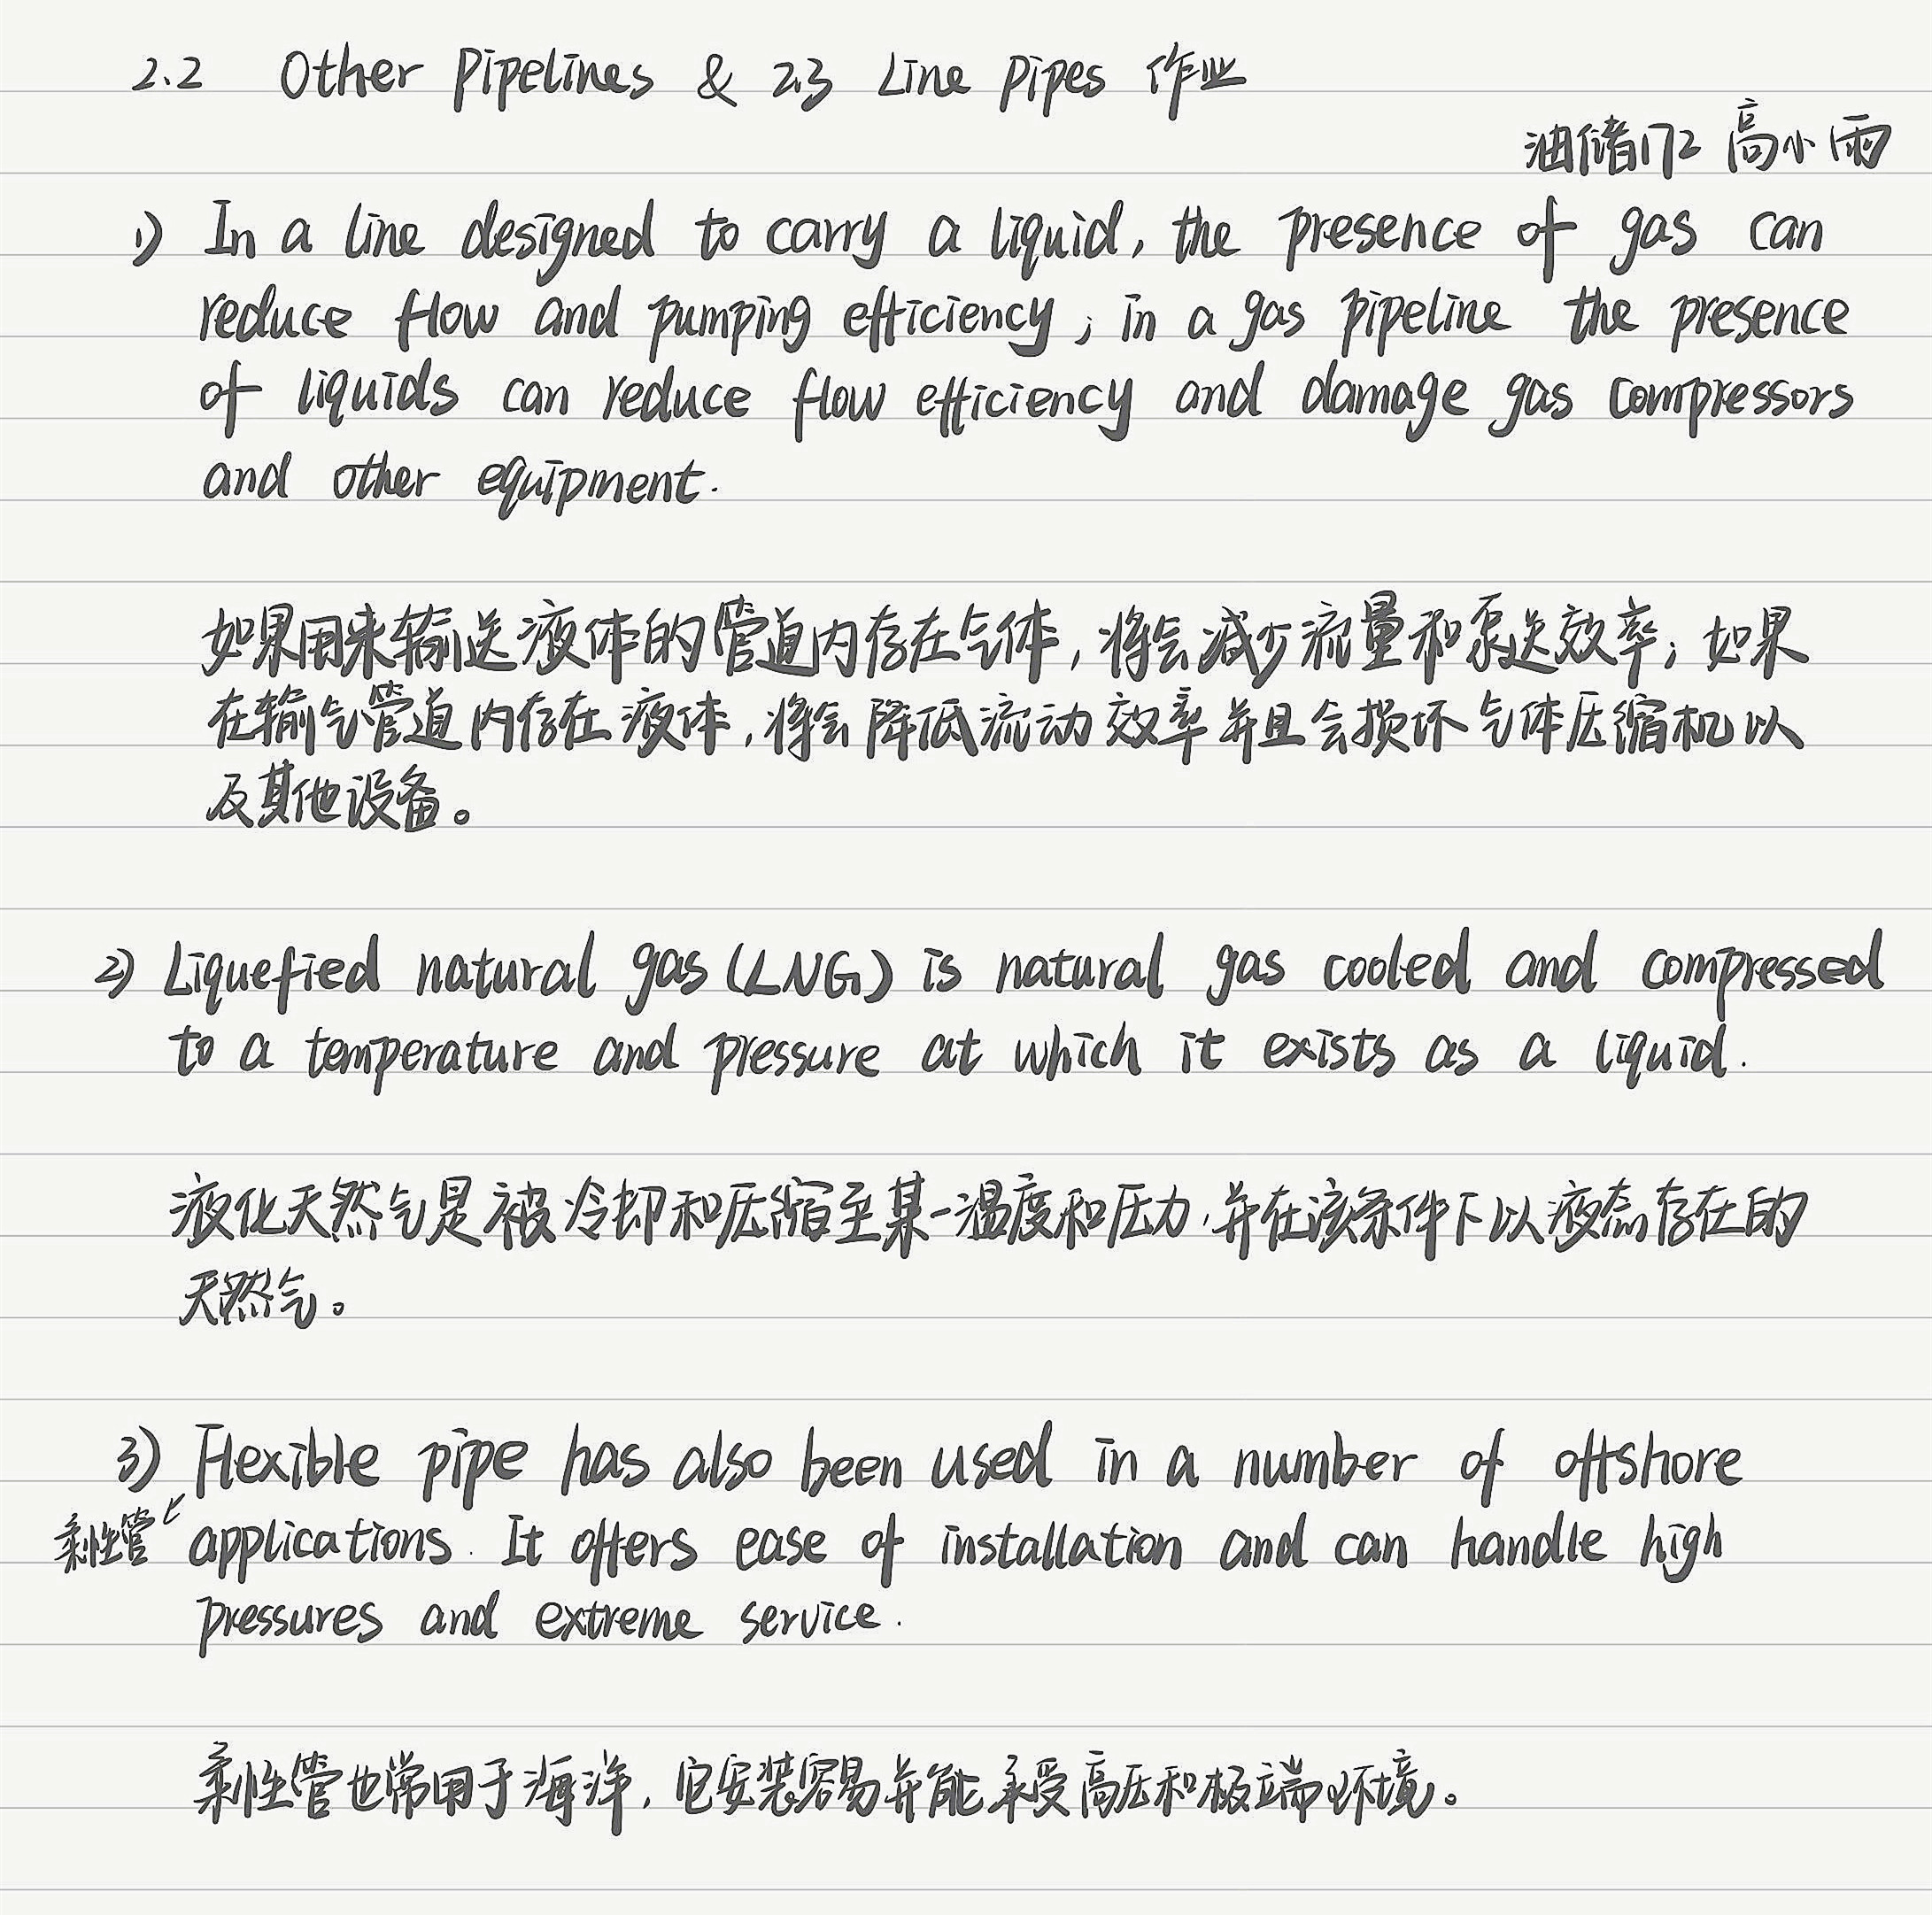 2.2 Other Pipelines & 2.3 Line Pipes 作业
油储172 高小雨
1) In a line designed to carry a liquid, the presence of gas can
reduce flow and pumping efficiency; in a gas pipeline the presence
of liquids can reduce flow efficiency and damage gas compressors
and other equipment.
如果用来输送液体的管道内存在气体,将会减少流量和泵送效率;如果
在输气管道内存在液体,将会降低流动效率并且会损坏气体压缩机以
及其他设备。
2) Liquefied natural gas (LNG) is natural gas cooled and compressed
to a temperature and pressure at which it exists as a liquid.
液化天然气是被冷却和压缩至某一温度和压力,并在该条件下以液态存在的
天然气。
3) Flexible pipe has also been used in a number of offshore
柔性管 applications. It offers ease of installation and can handle high
pressures and extreme service.
柔性管也常用于海洋,它安装容易并能承受高压和极端环境。